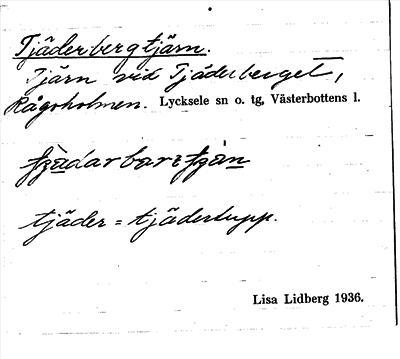 Tjäderbergtjärn.
Tjärn vid Tjäderberget,
Rågoholmen. Lycksele sn o. tg, Västerbottens l.
tjäder = tjädertupp.
Lisa Lidberg 1936.